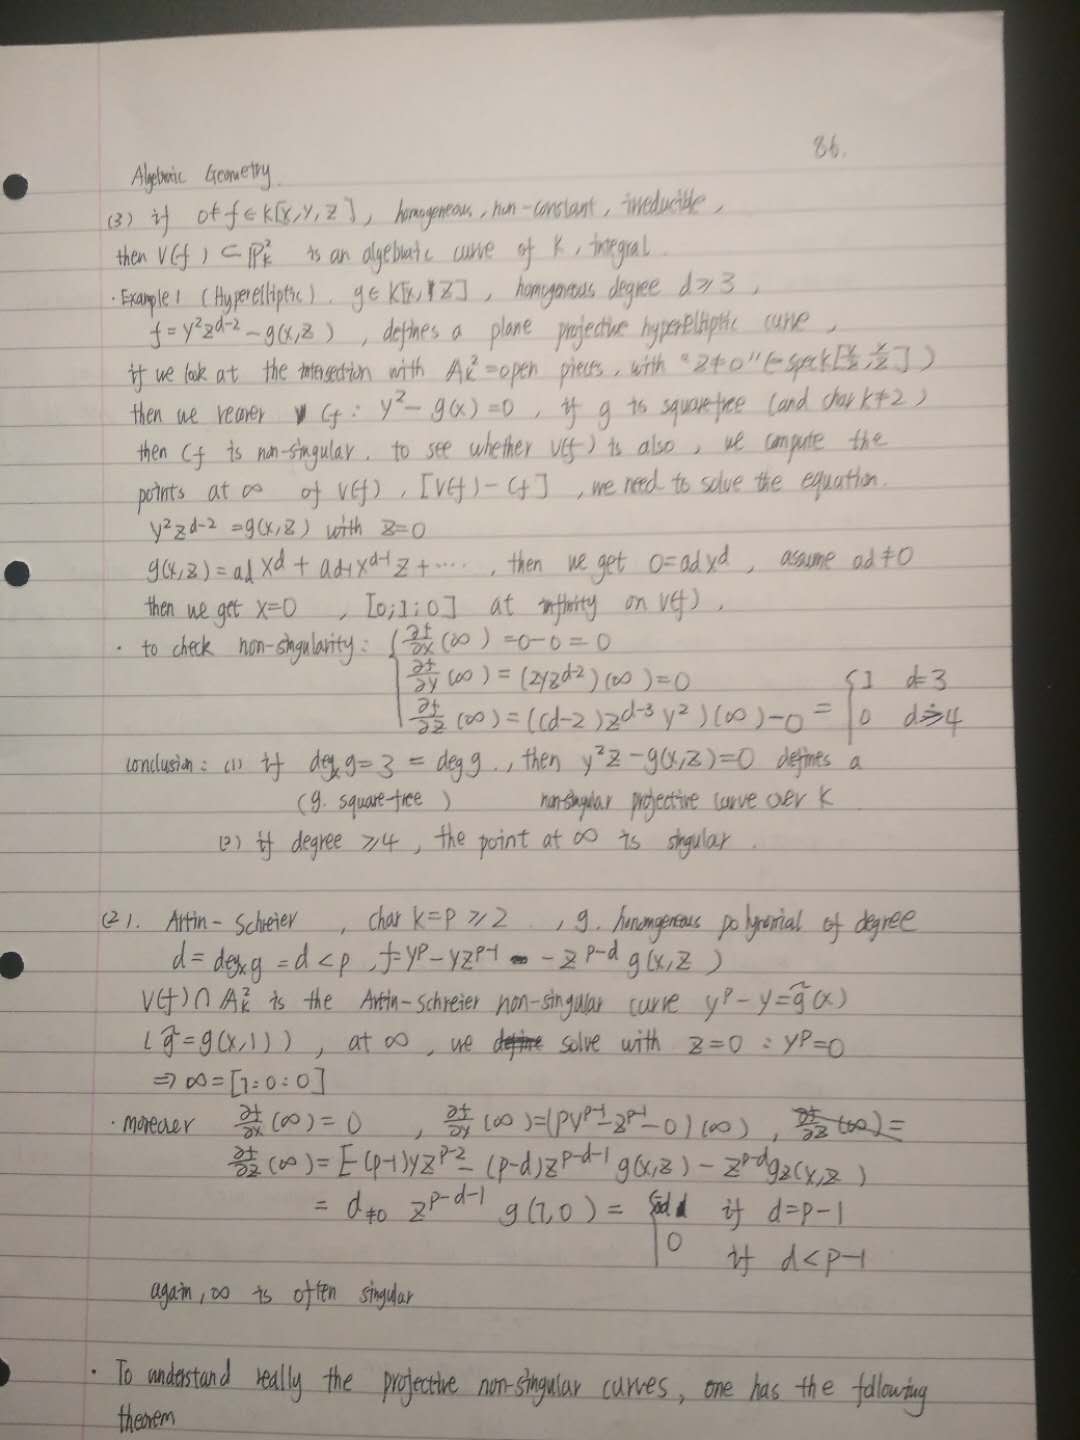 86.
Algebraic Geometry.
(3) if 0≠f∈k[x,y,z], homogeneous, non-constant, irreducible,
then V(f) ⊂ ℙ²ₖ is an algebraic curve of k, integral.
· Example 1 (Hyperelliptic). g∈k[x,z], homogeneous degree d≥3,
f=y²z^{d-2} - g(x,z), defines a plane projective hyperelliptic curve,
if we look at the intersection with 𝔸ₖ²=open pieces, with "z≠0" (=spec k[x/z, y/z])
then we recover Cf: y² - g(x) = 0, if g is squarefree (and char k≠2)
then Cf is non-singular. to see whether V(f) is also, we compute the
points at ∞ of V(f), [V(f) - Cf], we need to solve the equation.
y²z^{d-2} = g(x,z) with z=0
g(x,z) = ad x^d + ad-1 x^{d-1} z + ····, then we get 0=ad x^d, assume ad≠0
then we get x=0, [0:1:0] at infinity on V(f).
· to check non-singularity: { ∂f/∂x (∞) = 0-0 = 0
∂f/∂y (∞) = (2yz^{d-2})(∞) = 0
∂f/∂z (∞) = ((d-2)z^{d-3}y²)(∞) - 0 = { 1 d=3
0 d≥4
conclusion: (1) if degₓg = 3 = deg g., then y²z - g(x,z) = 0 defines a
(g. square-free) non-singular projective curve over k
(2) if degree ≥4, the point at ∞ is singular.
(2). Artin-Schreier, char k=p≥2., g. homongeneous polynomial of degree
d = degₓg = d < p, f=y^p - yz^{p-1} - z^{p-d} g(x,z)
V(f)∩𝔸ₖ² is the Artin-Schreier non-singular curve y^p - y = g̃(x)
(g̃ = g(x,1)), at ∞, we solve with z=0 : y^p=0
⇒ ∞ = [1:0:0]
· moreover ∂f/∂x (∞) = 0, ∂f/∂y (∞) = (py^{p-1} - z^{p-1} - 0)(∞), ∂f/∂z (∞) =
∂f/∂z (∞) = [-(p-1)yz^{p-2} - (p-d)z^{p-d-1} g(x,z) - z^{p-d} gz(x,z)
= d≠0 z^{p-d-1} g(1,0) = { ad d if d=p-1
0 if d<p-1
again, ∞ is often singular
· To understand really the projective non-singular curves, one has the following
theorem